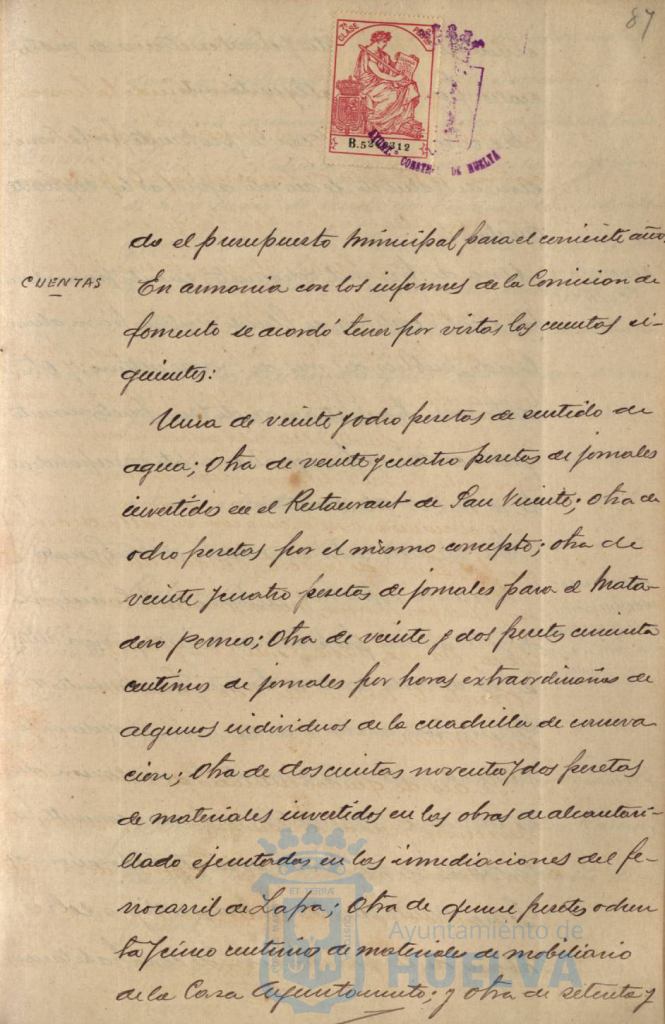 87
7ª CLASE
AYUNTº CONSTNL DE HUELVA
do el presupuesto municipal para el corriente año.
CUENTAS
En armonia con los informes de la Comision de
fomento se acordó tener por vistas las cuentas si-
guientes:
Una de veinte y ocho pesetas de surtido de
agua; Otra de veinte y cuatro pesetas de jornales
invertidos en el Restaurant de San Vicente; otra de
ocho pesetas por el mismo concepto; otra de
veinte y cuatro pesetas de jornales para el Mata-
dero Porcno; Otra de veinte y dos pesetas cincuenta
centimos de jornales por horas extraordinarias de
algunos individuos de la cuadrilla de conserva-
cion; Otra de doscientas noventa y dos pesetas
de materiales invertidos en las obras de alcantari-
llado ejecutadas en las inmediaciones del fe-
rrocarril de Zafra; Otra de quince pesetas ochen
ta y cinco centimos de materiales de mobiliario
de la Casa Ayuntamiento; y otra de setenta y
Ayuntamiento de
HUELVA